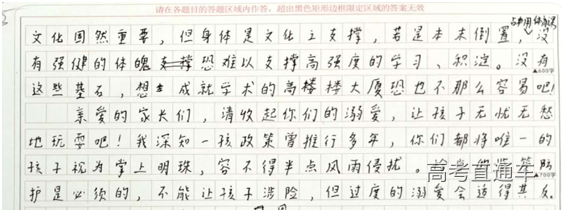 请在各题目的答题区域内作答，超出黑色矩形边框限定区域的答案无效
文化固然重要，但身体是文化之支撑，若是本末倒置，没
有强健的体魄支撑恐难以支撑高强度的学习、积淀。没有
这些基石，想成就学术的高楼大厦恐也不那么容易吧！
▲600字
亲爱的家长们，请收起你们的溺爱，让孩子无忧无愁
地玩耍吧！我深知一孩政策曾推行多年，你们都将唯一的
孩子视为掌上明珠，容不得半点风雨侵扰。
高考直通车
护是必须的，不能让孩子涉险，但过度的溺爱会适得其反
▲700字